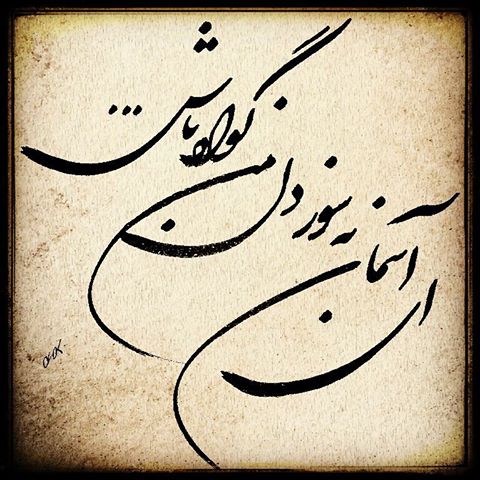 ای آسمان به سوز دل من گواه باش...